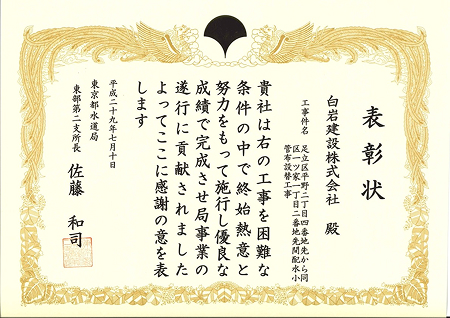 表彰状
白岩建設株式会社 殿
工事件名 足立区平野二丁目四番地先から同
区一ツ家一丁目二番地先間配水小
管布設替工事
貴社は右の工事を困難な
条件の中で終始熱意と
努力をもって施行し優良な
成績で完成させ局事業の
遂行に貢献されました
よってここに感謝の意を表
します
平成二十九年七月十日
東京都水道局
東部第二支所長 佐藤 和司